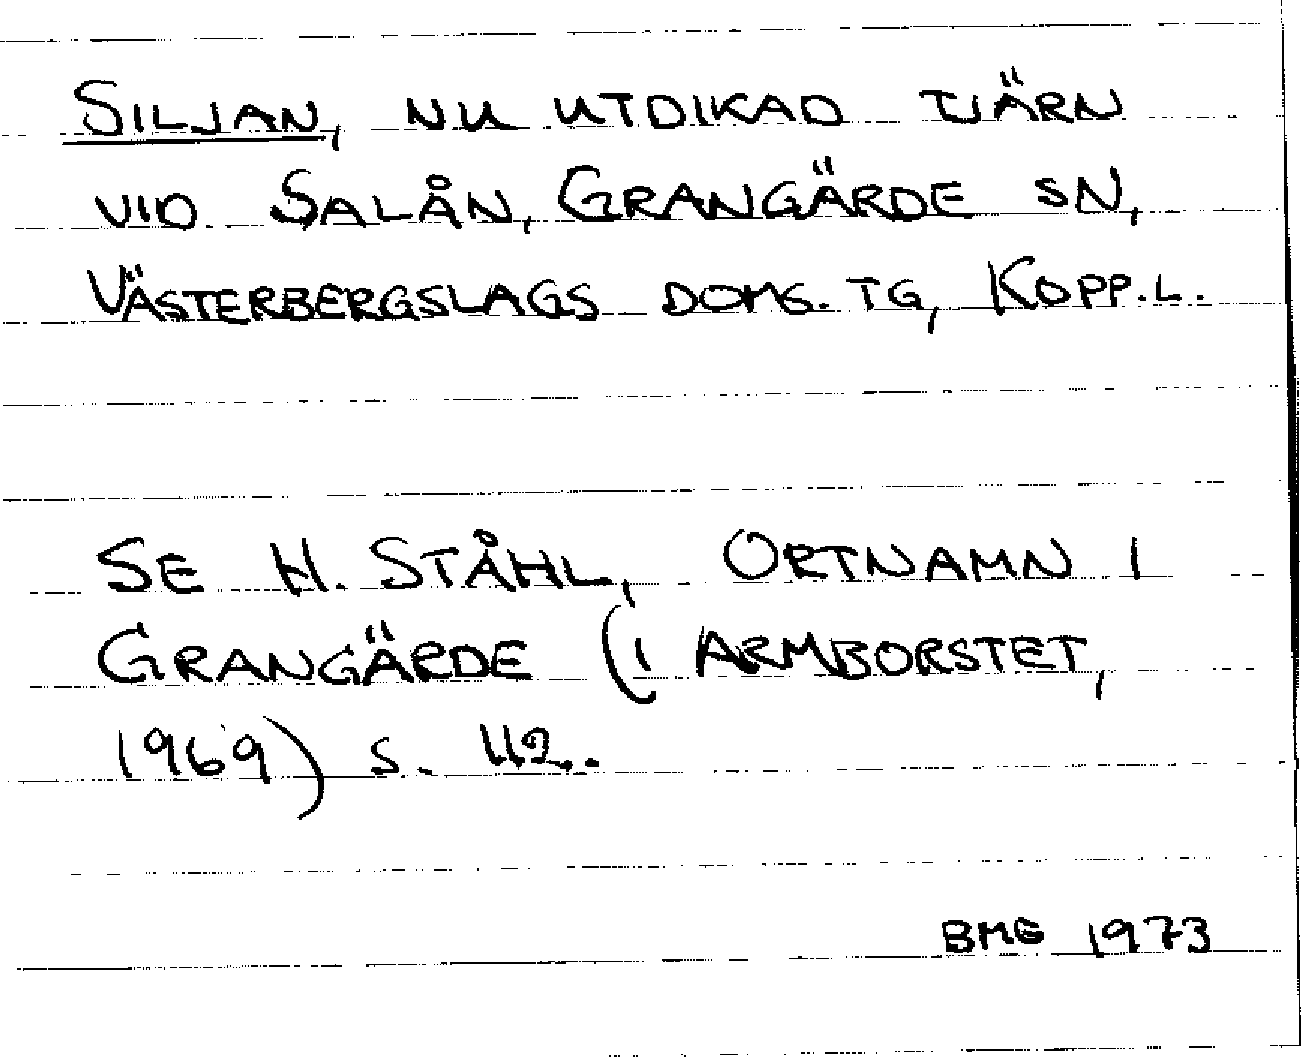 SILJAN, NU UTDIKAD TJÄRN
VID SALÅN, GRANGÄRDE SN,
VÄSTERBERGSLAGS DOMS. TG, KOPP.L.
SE H. STÅHL, ORTNAMN I
GRANGÄRDE (I ARMBORSTET,
1969) S. 112.
BMG 1973